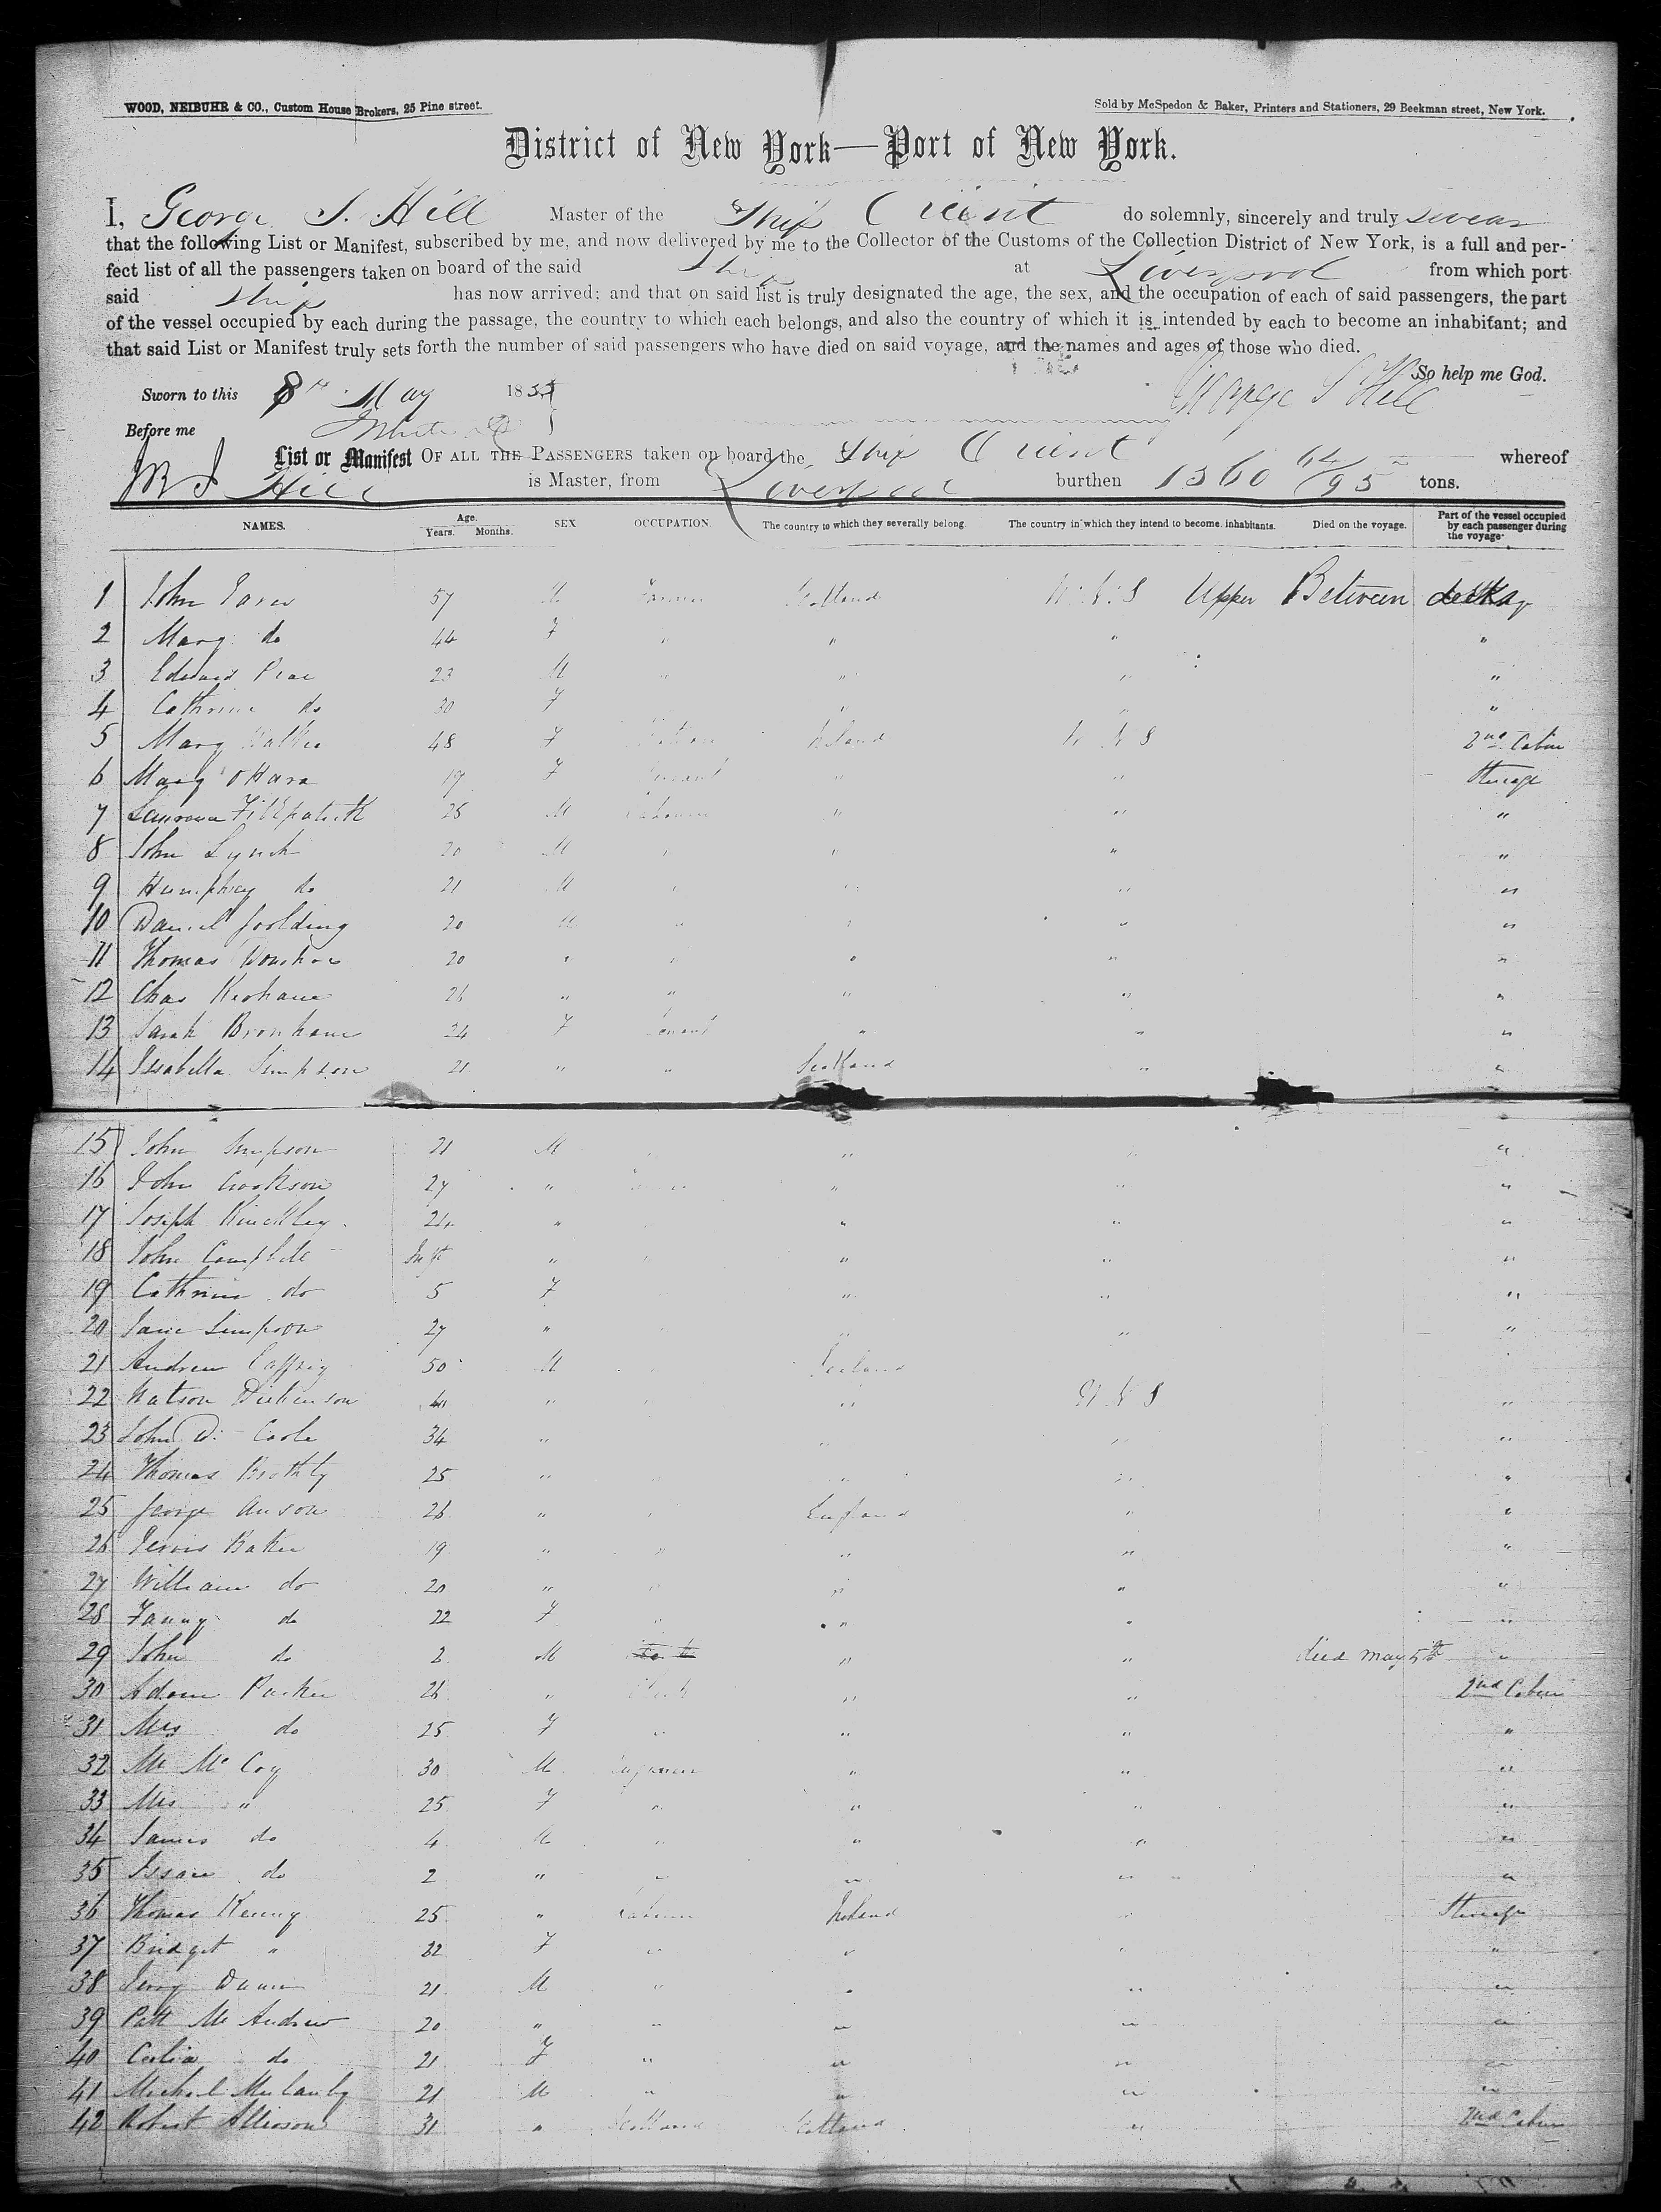 WOOD, NEIBUHR & CO., Custom House Brokers, 25 Pine street.
Sold by McSpedon & Baker, Printers and Stationers, 29 Beekman street, New York.
District of New York—Port of New York.
I, George S. Hill Master of the Ship Orient do solemnly, sincerely and truly swear
that the following List or Manifest, subscribed by me, and now delivered by me to the Collector of the Customs of the Collection District of New York, is a full and per-
fect list of all the passengers taken on board of the said Ship at Liverpool from which port
said Ship has now arrived; and that on said list is truly designated the age, the sex, and the occupation of each of said passengers, the part
of the vessel occupied by each during the passage, the country to which each belongs, and also the country of which it is intended by each to become an inhabitant; and
that said List or Manifest truly sets forth the number of said passengers who have died on said voyage, and the names and ages of those who died.
So help me God.
Sworn to this 8th May 185 George S Hill
Before me
List or Manifest OF ALL THE PASSENGERS taken on board the Ship Orient whereof
Hill is Master, from Liverpool burthen 1560 64/95 tons.
NAMES. Age. Years. Months. SEX OCCUPATION. The country to which they severally belong. The country in which they intend to become inhabitants. Died on the voyage. Part of the vessel occupied by each passenger during the voyage.
1 John 57 M Farmer Scotland U.S Upper Between decks
2 Mary do 44 F " " " "
3 Edward 23 M " " " "
4 Cathrine do 30 F " " "
5 Mary 48 F Ireland U S 2nd Cabin
6 Mary O'Hara 19 F Servant " " Steerage
7 Laurence Fitzpatrick 25 M Labourer " " "
8 John Lynch 20 M " " " "
9 Humphrey do 21 M " " " "
10 Daniel Goolding 20 M " " " "
11 Thomas 20 " " " " "
12 Chas Keohane 26 " " " " "
13 Sarah 24 F Servant " " "
14 Issabella Simpson 21 " " Scotland " "
15 John Simpson 21 M " " " "
16 John Cookson 27 " " " "
17 Joseph Kinckley 24 " " " "
18 John Inft " " " " "
19 Cathrine do 5 F " " "
20 Jane Simpson 27 " " " " "
21 Andrew Caffrey 50 M Ireland
22 Watson Dickenson 40 " " U S "
23 John D. Coole 34 " " " "
24 Thomas 25 " " " "
25 George Anson 26 " " England " "
26 Baker 19 " " " " "
27 William do 20 " " " " "
28 Fanny do 22 F " " " "
29 John do 2 M " " died may 5th "
30 Adam Parker 26 " " " 2nd Cabin
31 Mrs do 25 F " " " "
32 Mr McCoy 30 M " " "
33 Mrs " 25 F " " " "
34 James do 4 M " " " "
35 Issac do 2 " " " " "
36 Thomas Kenny 25 " Labourer Ireland " Steerage
37 Bridget " 22 F " " " "
38 21 M " " " "
39 Patt McAndrew 20 " " " " "
40 Celia do 21 F " " " "
41 Michael 21 M " " " "
42 Robert 31 " Scotland Scotland " 2nd Cabin